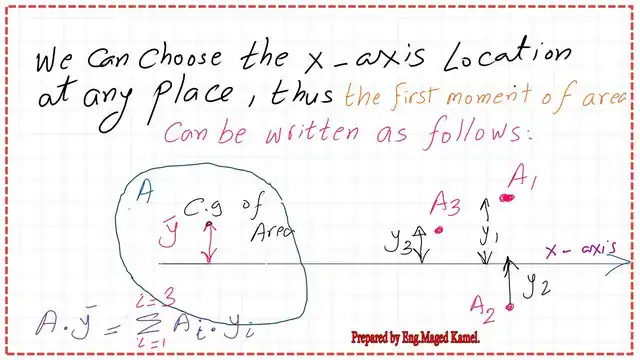 We Can Choose the x-axis Location
at any Place, thus the first moment of area
Can be written as follows:
A
C.g of
Area
ȳ
A3
A1
y3
y1
x-axis
y2
A2
A.ȳ = Σ i=1 i=3 Ai.yi
Prepared by Eng.Maged Kamel.